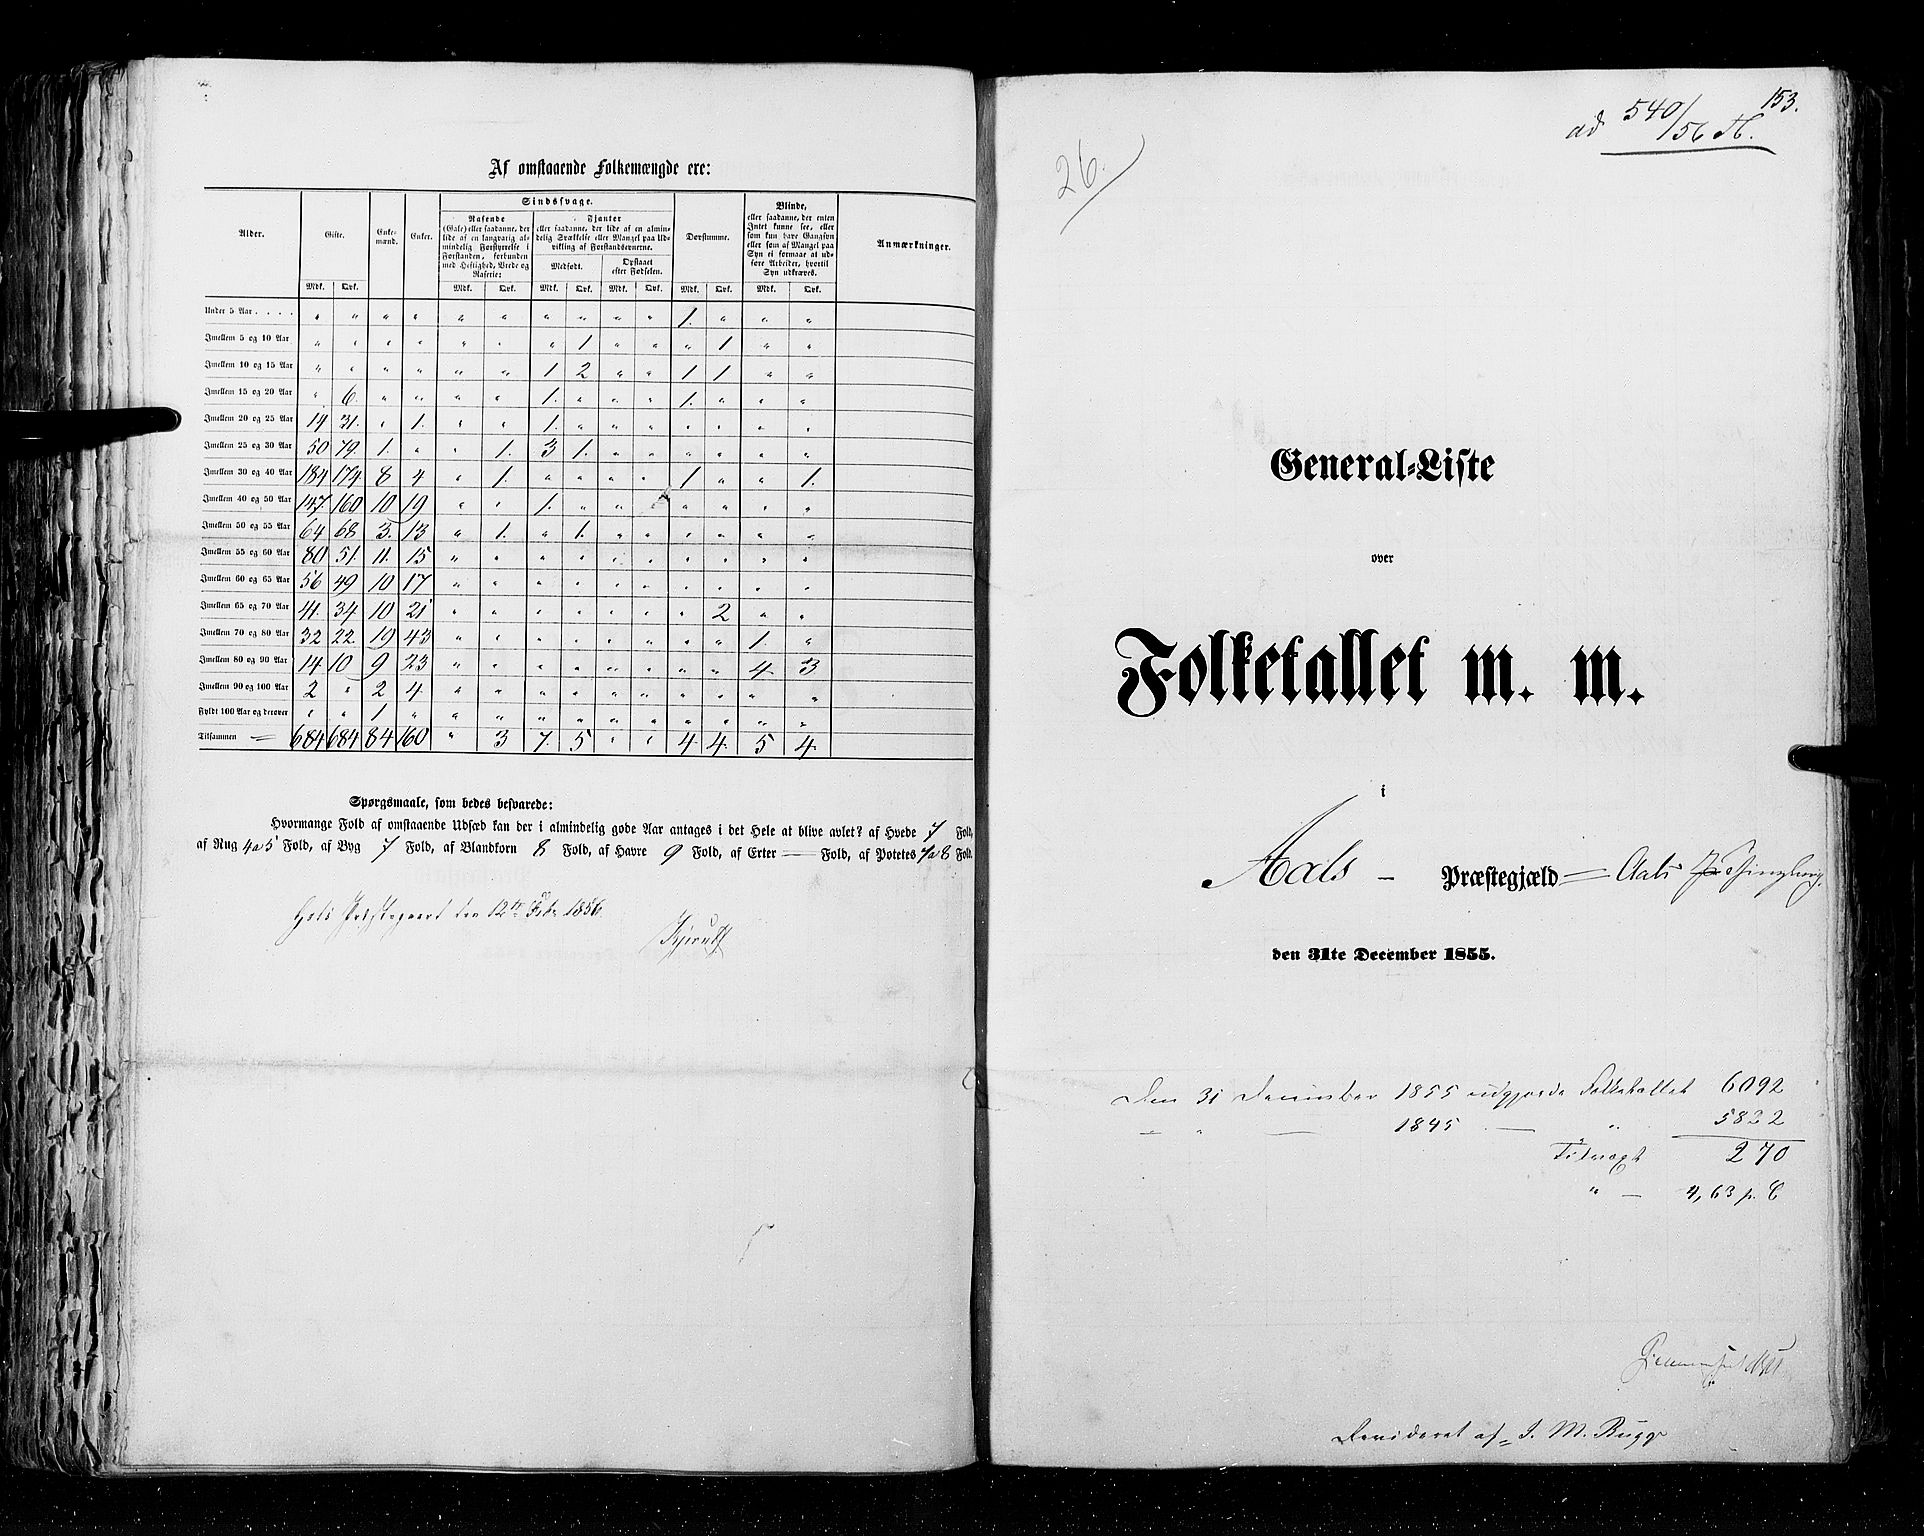 Af omstaaende Folkemængde ere:
Alder. Gifte. Enke-mænd. Enker. Sindssvage. Døvstumme. Blinde, Anmærkninger.
Rasende
(Gale) eller saadanne, der
lide af en langvarig al-
mindelig Forstyrrelse i
Forstanden, forbunden
med Heftighed, Vrede og
Raseri:
Fjanter
eller saadanne, der lide af en almin-
delig Svækkelse eller Mangel paa Ud-
vikling af Forstandsevnerne.
Medfødt. Opstaaet
efter Fødselen.
eller saadanne, der enten
Intet kunne see, eller
som kun have Gangsyn
eller som af Mangel paa
Syn ei formaae at ud-
føre Arbeider, hvortil
Syn udkræves.
Mdk. Qvk. Mdk. Qvk. Mdk. Qvk. Mdk. Qvk. Mdk. Qvk. Mdk. Qvk.
Under 5 Aar . . . . " " " " " " " " " " 1. " " "
Imellem 5 og 10 Aar " " " " " " " 1 " " " 1 " "
Imellem 10 og 15 Aar " " " " " " 1 2 " " 1 1 " "
Imellem 15 og 20 Aar " 6. " " " " 1. " " " 1. " " "
Imellem 20 og 25 Aar 19 31. " 1. " " 1. " " " " " " "
Imellem 25 og 30 Aar 50 79. 1. " " 1. 3 1. " " " " " "
Imellem 30 og 40 Aar 184 174 8 4 " 1. " " " " 1 " " 1.
Imellem 40 og 50 Aar 147. 160 10 19 " " 1. " " " " " " "
Imellem 50 og 55 Aar 64 68 3. 13 " 1. " 1. " " " " " "
Imellem 55 og 60 Aar 80 51. 11. 15 " " " " " " " " " "
Imellem 60 og 65 Aar 56 49 10 17 " " " " " " " " " "
Imellem 65 og 70 Aar 41. 34 10 21 " " " " " " " 2 " "
Imellem 70 og 80 Aar 32 22 19 43 " " " " " " " " 1. "
Imellem 80 og 90 Aar 14 10 9 23 " " " " " " " " 4. 3
Imellem 90 og 100 Aar 2 " 2 4. " " " " " " " " " "
Fyldt 100 Aar og derover " " 1 " " " " " " " " " " "
Tilsammen = 684 684 84 160 " 3 7. 5 " " 4. 4. 5 4.
Spørgsmaale, som bedes besvarede:
Hvormange Fold af omstaaende Udsæd kan der i almindelig gode Aar antages i det Hele at blive avlet? af Hvede 7 Fold,
af Rug 4 a 5 Fold, af Byg 7 Fold, af Blandkorn 8 Fold, af Havre 9 Fold, af Erter — Fold, af Potetes 7 a 8 Fold.
Hols Præstegaard den 12te Febr. 1856.
Kjerulf
153.
ad 540/56 A.
26.
General-Liste
over
Folketallet m. m.
i
Aals – Præstegjæld = Aals Thinglaug.
den 31te December 1855.
Den 31 December 1855 udgjorde Folketallet 6092
— " — 1845 — " 5822
Tilvæxt 270
" — 4,63 p. C
Revideret af J. M. Bugge